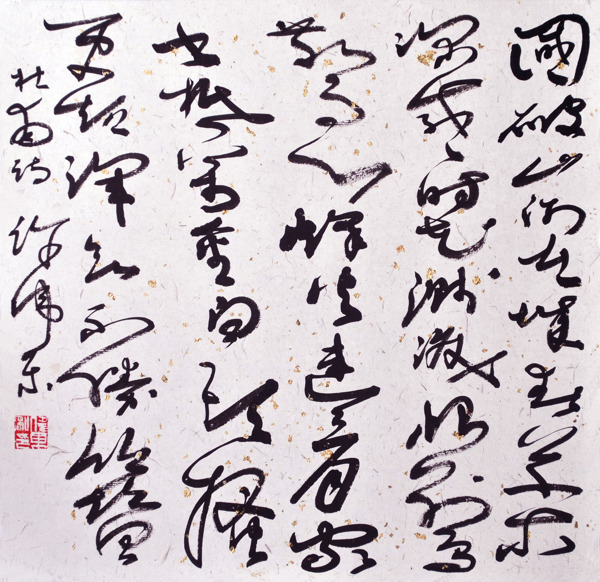 國破山河在城春草木
深感時花濺淚恨別鳥
驚心烽火連三月家
書抵萬金白頭搔
更短渾欲不勝簪
杜甫詩 許偉東